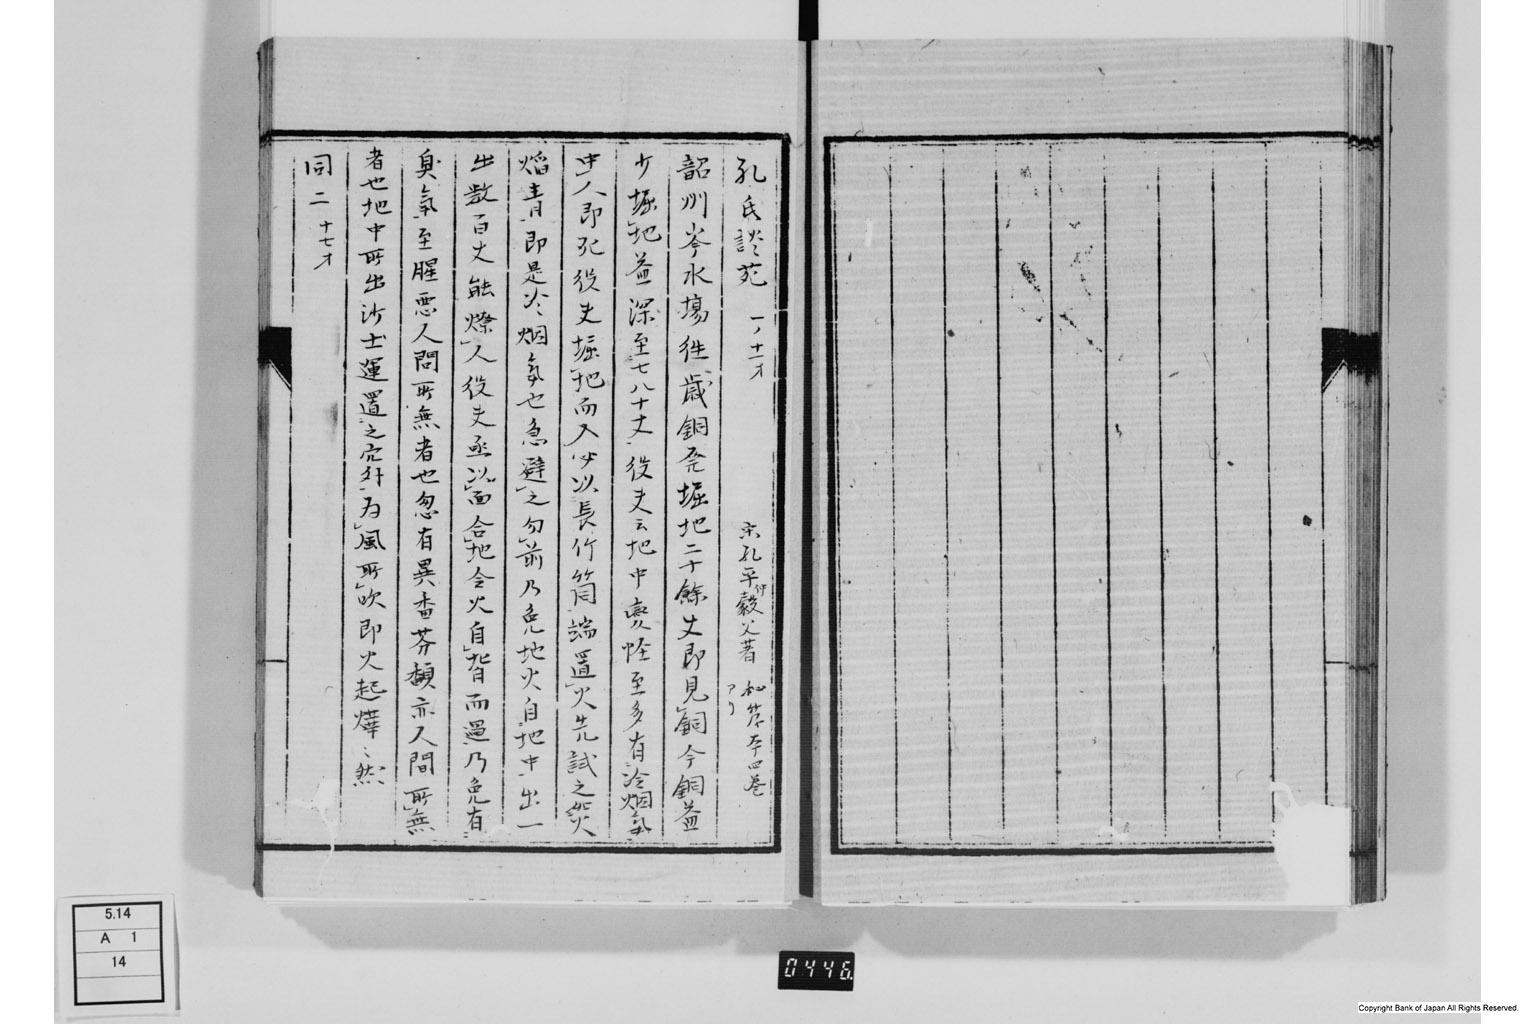 孔氏談苑 一ノ十一才 宋孔平仲毅父著 和筞本四巻アリ
韶州岑水場徃歳銅発堀地二十餘丈即見銅今銅益
少堀地益深至七八十丈役夫云地中變怪至多有冷烟氣
中人即死役夫堀地而入必以長竹筒端置火先試之如火
焰青即是冷烟氣也急避之勿前乃免地火自地中出一
出数百丈能燎人役夫亟以面合地令火自背而過乃免有
臭氣至腥悪人間所無者也忽有異香芬馥亦人間所無
者也地中所出沙土運置之穴外為風所吹即火起燁〻然
同二 十七才
5.14
A 1
14
0446
Copyright Bank of Japan All Rights Reserved.